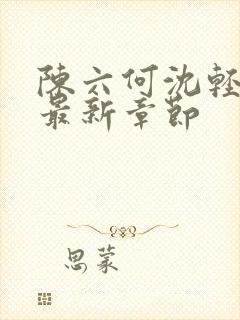 陳六何沈輕
最新章節
思蒙